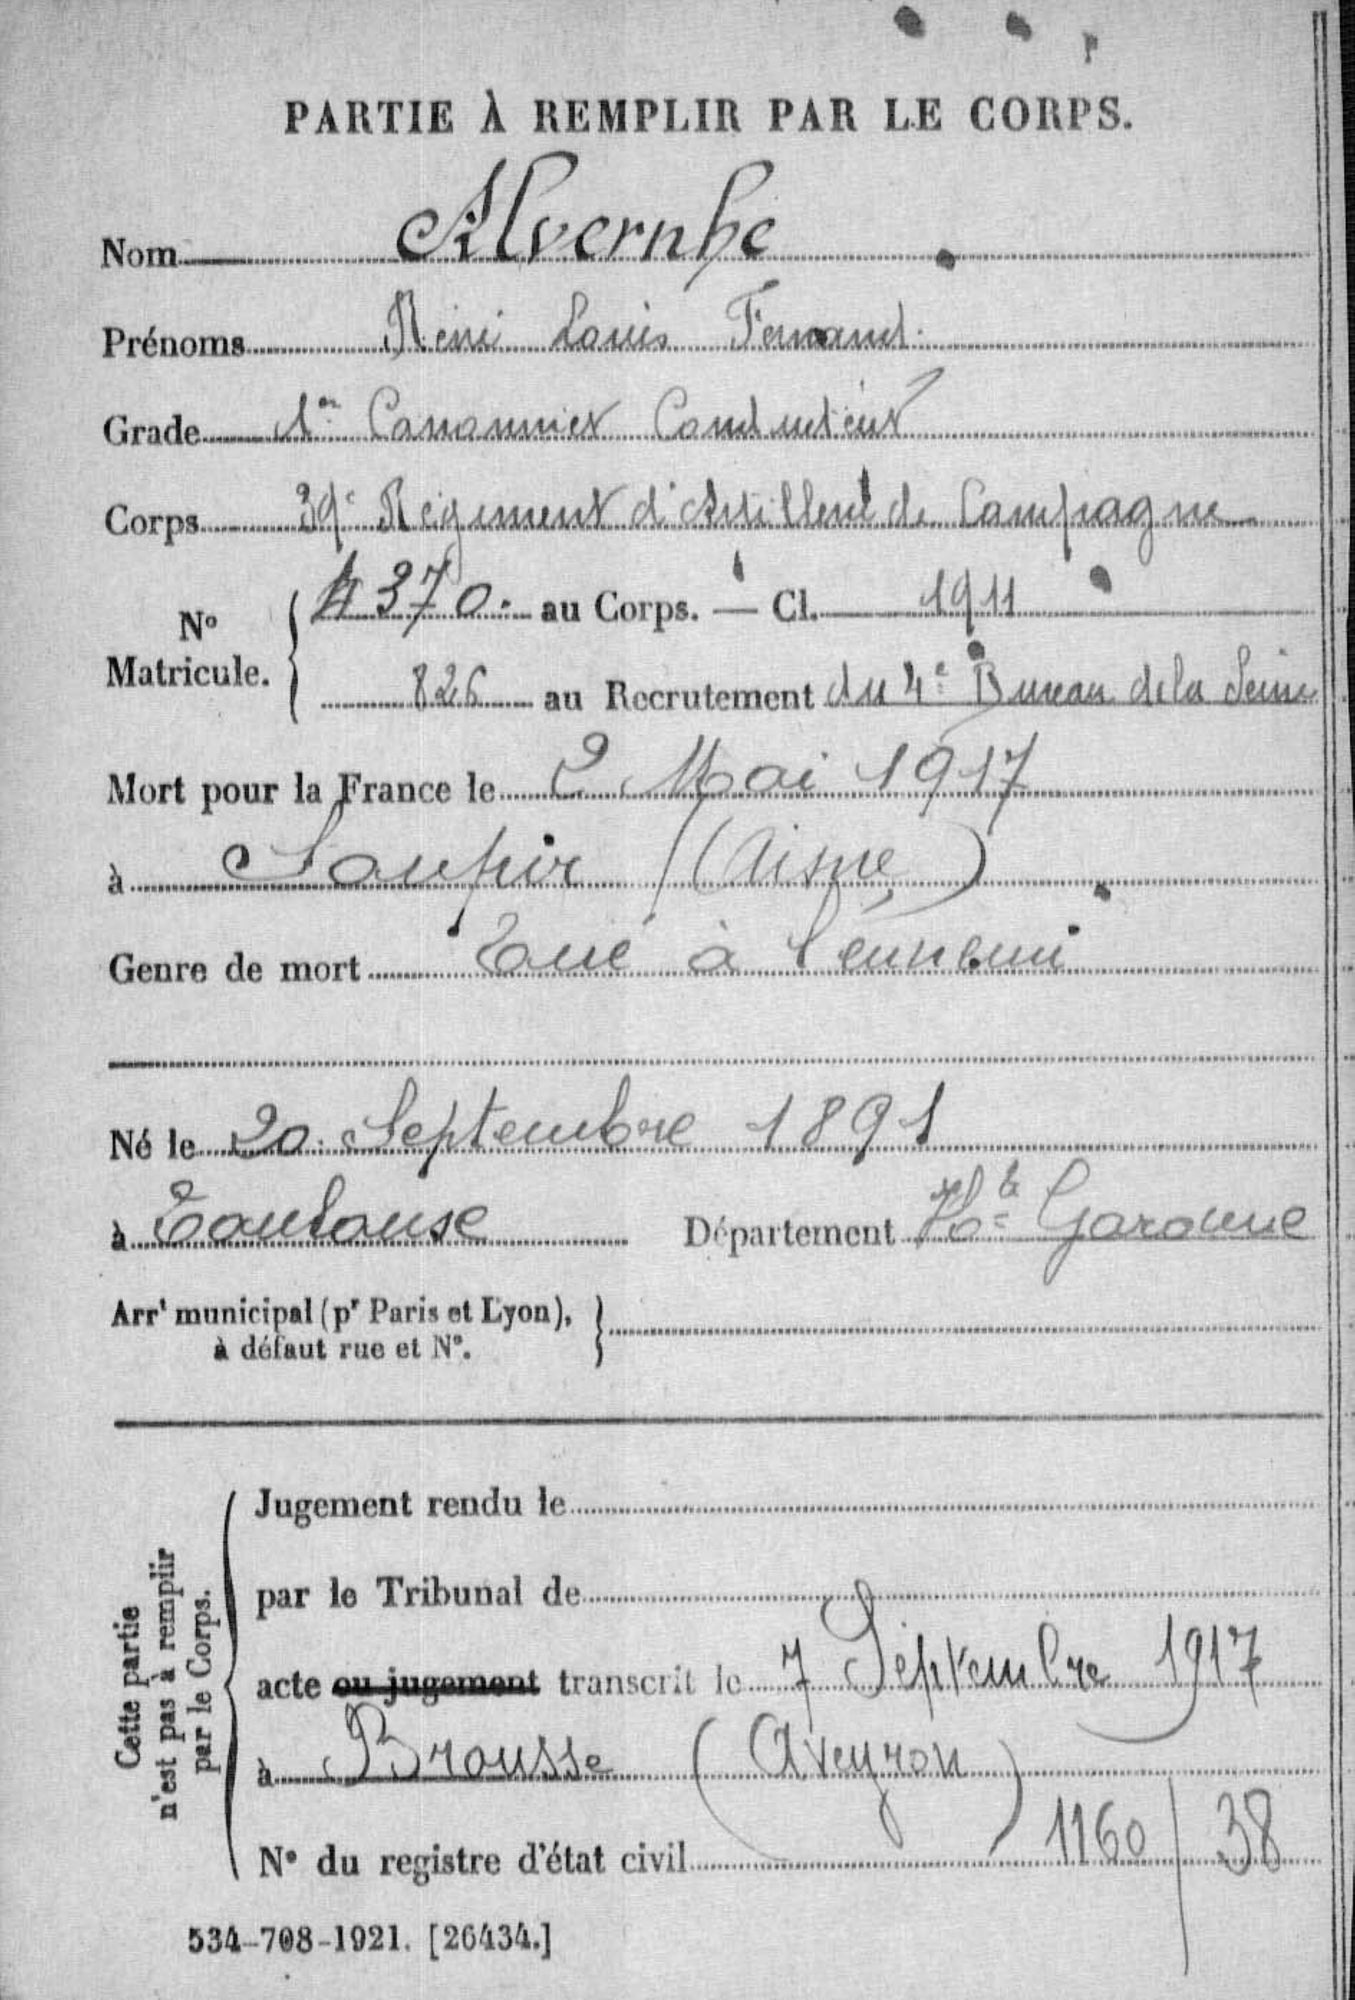 PARTIE À REMPLIR PAR LE CORPS.
Nom Alvernhe
Prénoms René Louis Fernand
Grade 1er Canonnier Conducteur
Corps 39e Régiment d'Artillerie de Campagne
No Matricule. 4370. au Corps. — Cl. 1911
826 au Recrutement du 4e Bureau de la Seine
Mort pour la France le 2 Mai 1917
à Soupir (Aisne)
Genre de mort Tué à l'ennemi
Né le 20 Septembre 1891
à Toulouse Département Hte Garonne
Arrt municipal (pr Paris et Lyon),
à défaut rue et No.
Cette partie
n'est pas à remplir
par le Corps.
Jugement rendu le
par le Tribunal de
acte ou jugement transcrit le 7 Septembre 1917
à Brousse (Aveyron)
No du registre d'état civil 1160/38
534-708-1921. [26434.]